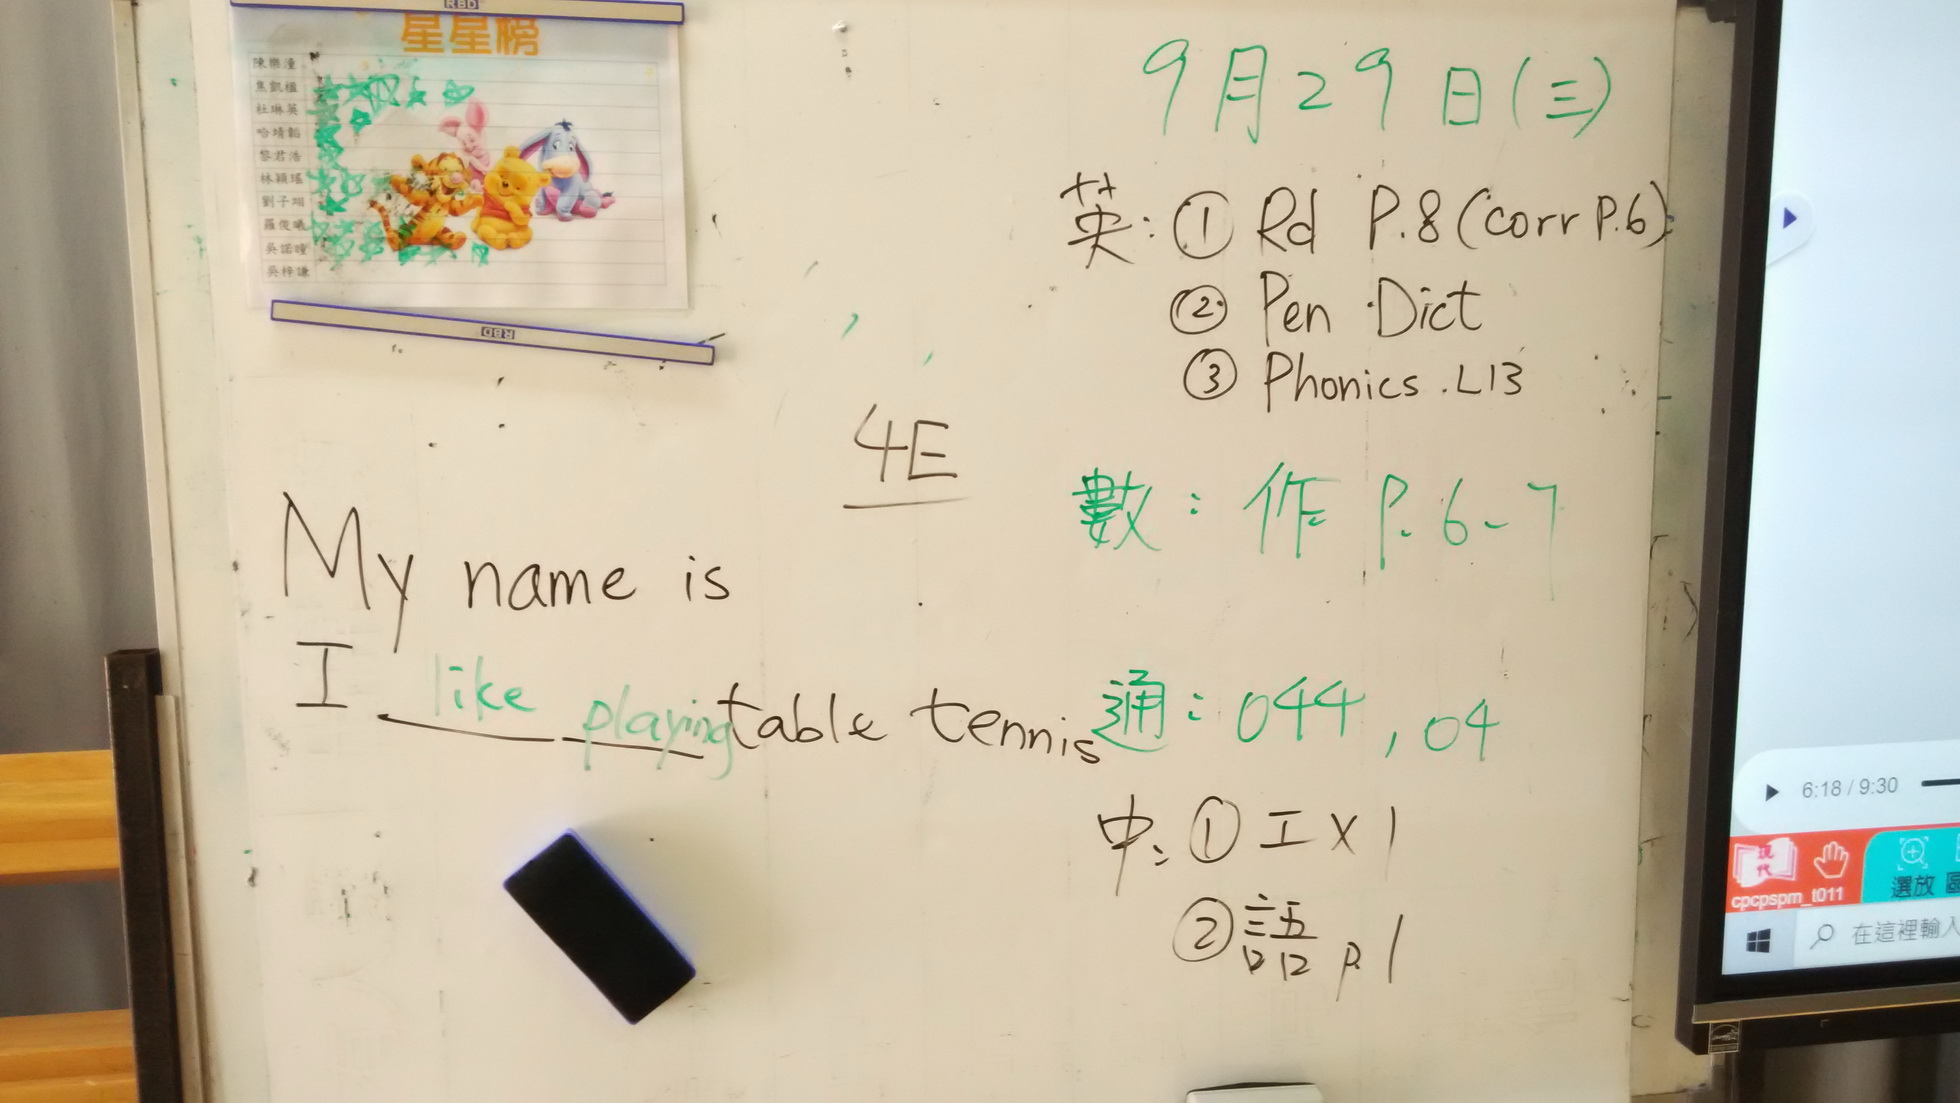 RBD
星星榜
陳樂潼
焦凱楹
杜琳英
哈靖韜
黎君浩
林穎瑤
劉子翊
羅俊曦
吳諾瞳
吳梓謙
RBD
4E
My name is
I like playing table tennis
9月29日(三)
英:① Rd P.8 (corr P.6)
② Pen Dict
③ Phonics .L13
數:作 P.6-7
通:044,04
中:① 工 X 1
②語 p.1
6:18 / 9:30
現代
cpcpspm_t011
選放
在這裡輸入